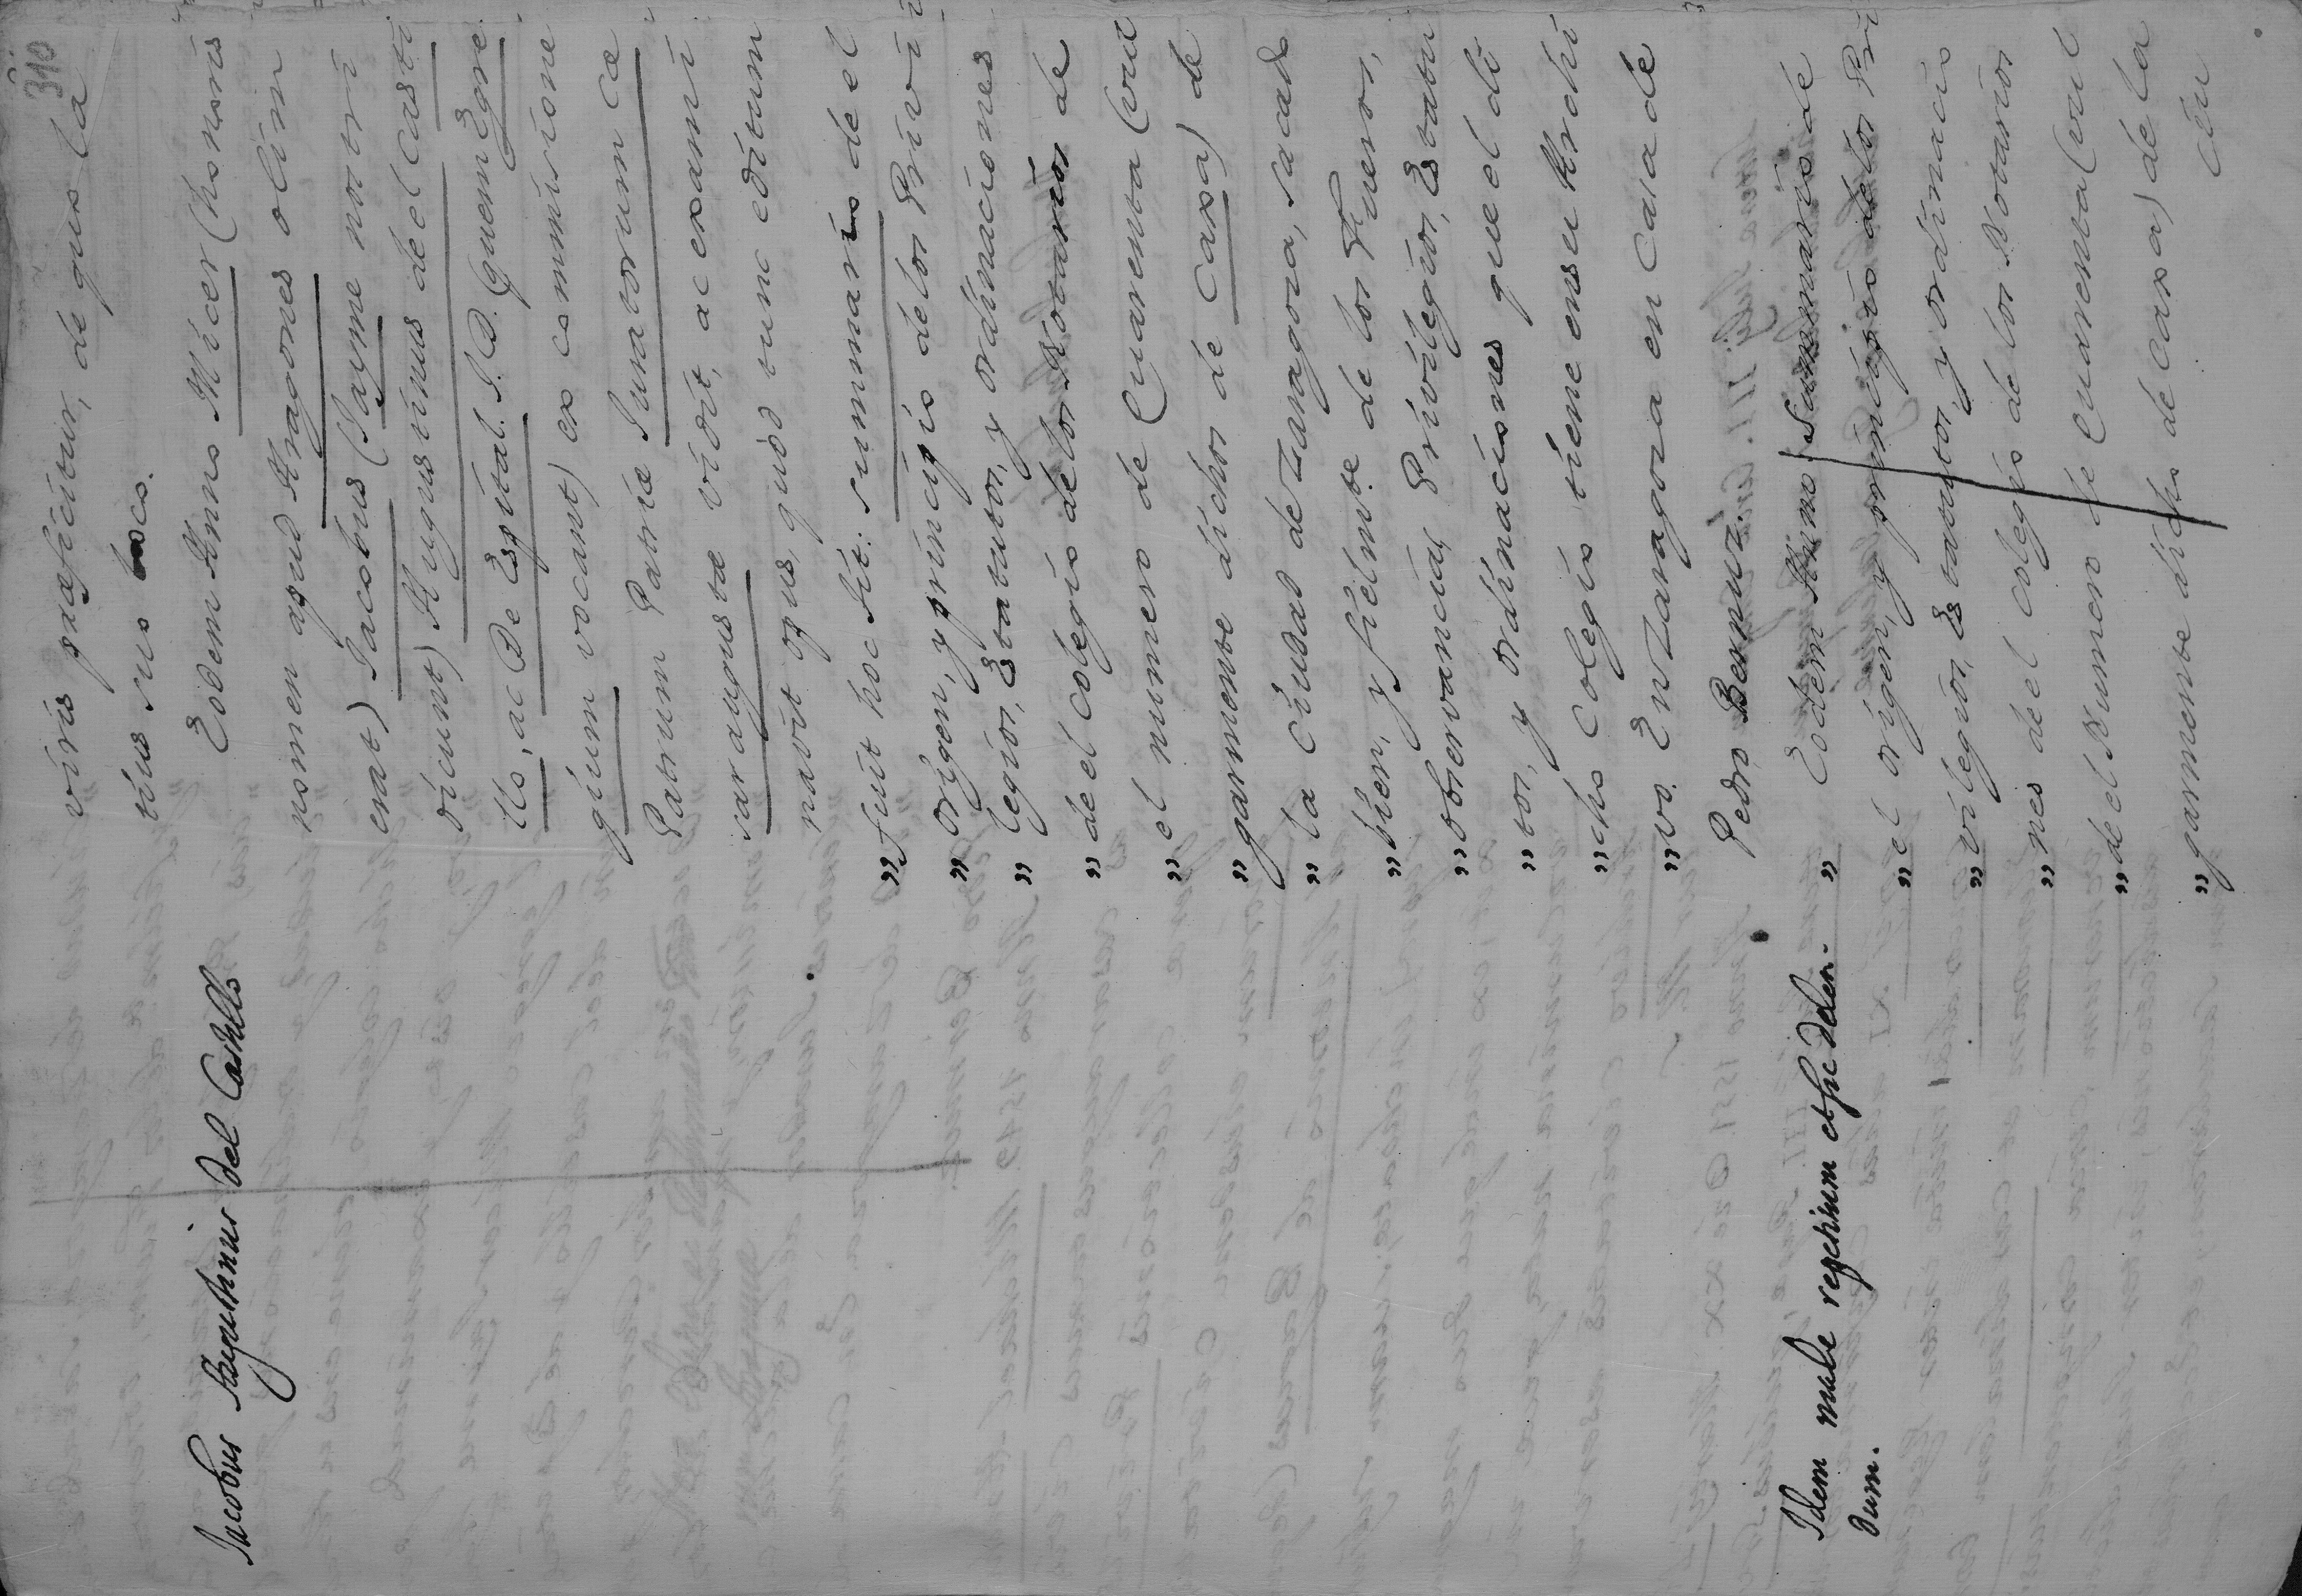 310
viris præficitur, de quo la
tius suo loco.
Jacobus Augustinus del Castillo
Eodem Anno Micer (honoris
nomen apud Aragones olim
erat) Jacobus (Jayme nostri
dicunt) Augustinus de el Casti
llo, ac De Espital. J. D. (quem Egre
gium vocant) ex commissione
Patrum Patriæ Juratorum Cæ
saraugustæ vidit, ac exami
navit opus, quod tunc editum
„ fuit hoc tit: summario de el
„ origen, y principio de los Privi
„ legios, Estatutos, y ordinaciones
„ de el colegio de los Notarios de
„ el numero de Cuarenta (vul
„ garmente dichos de Caxa) de
„ la Ciudad de Zaragoza, sacado
„ bien, y fielmte. de los Fueros,
„ observancias, Privilegios, Estatu
„ tos, y ordinaciones que el di
„ cho Colegio tiene en su Archi
„ vo. En Zaragoza en Casa de
Pedro Bernuz.
Idem male repetitum
dum.
„ Eodem Anno Summario de
„ el origen, y principio de los Pri
„ vilegios, Estatutos, y ordinacio
„ nes de el colegio de los Notarios
„ de el Numero de Cuarenta (vul
„ garmente dicho de Caxa) de la
Ciu